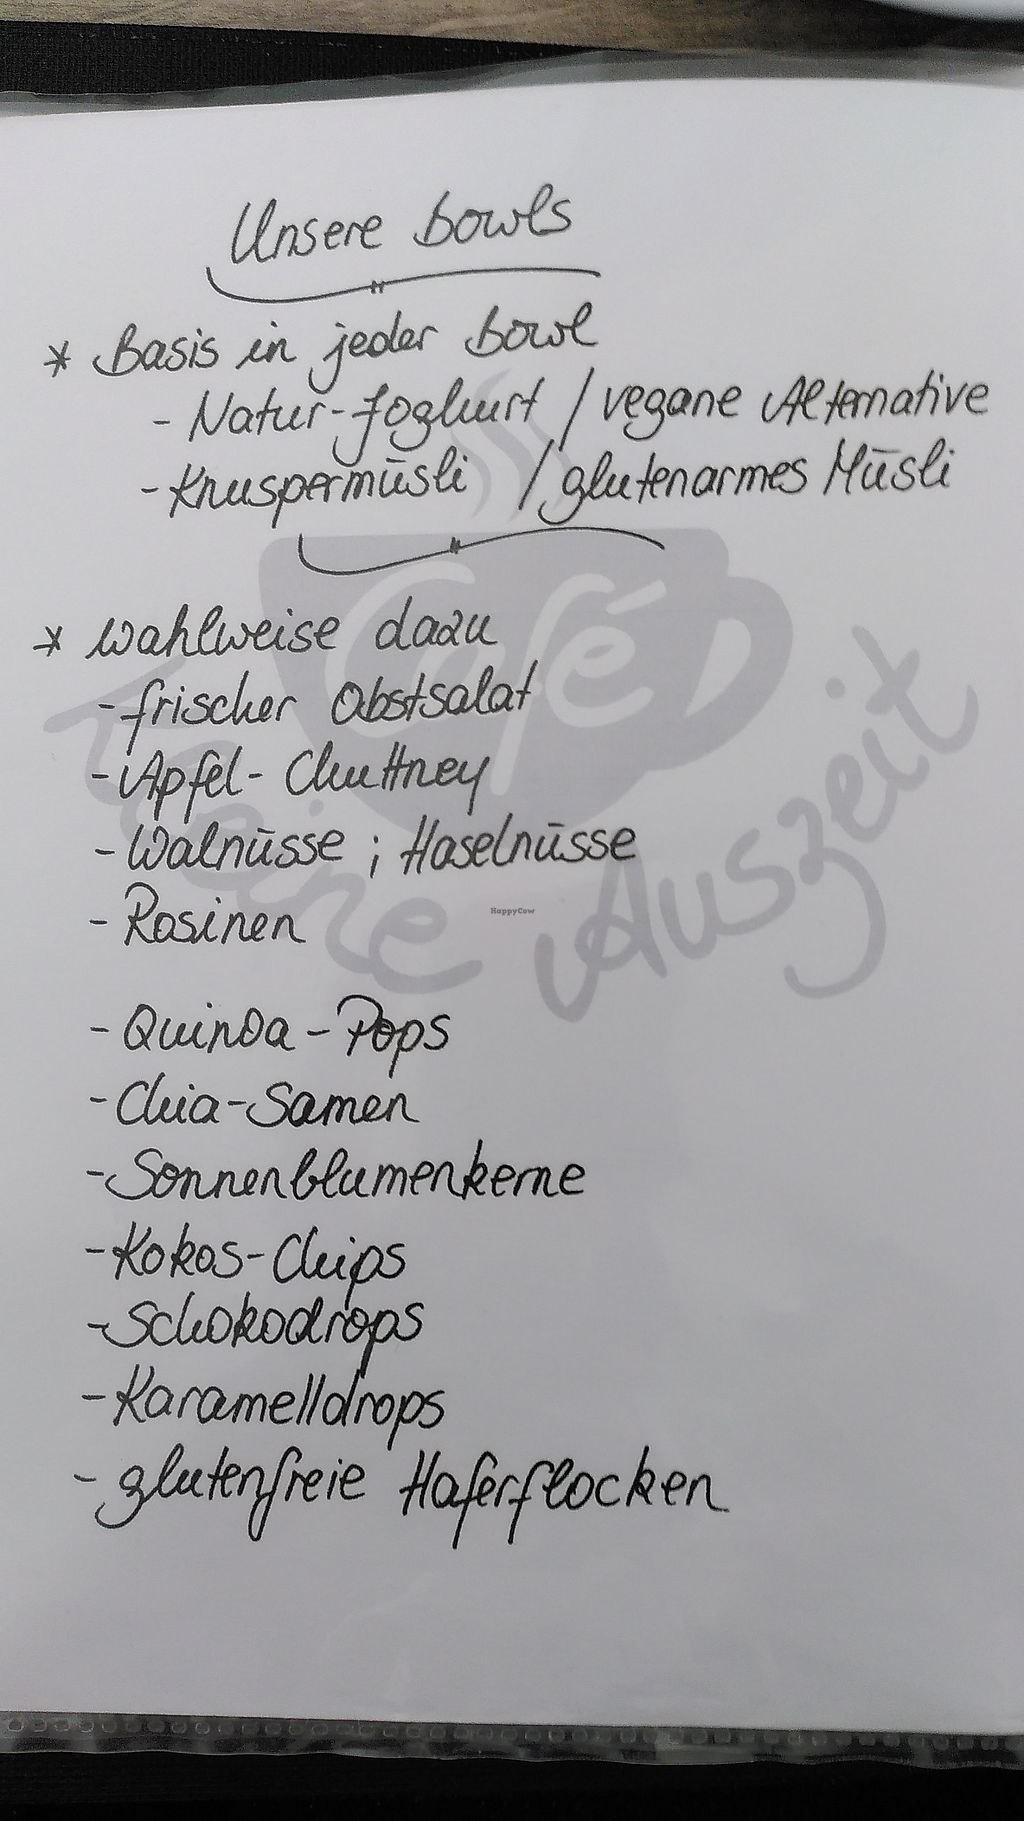 Unsere Bowls
* Basis in jeder Bowl
- Natur-Joghurt / vegane Alternative
- Knuspermüsli / glutenarmes Müsli
* Wahlweise dazu
- frischer Obstsalat
- Apfel-Chuttney
- Walnüsse ; Haselnüsse
- Rosinen
- Quinoa-Pops
- Chia-Samen
- Sonnenblumenkerne
- Kokos-Chips
- Schokodrops
- Karamelldrops
- glutenfreie Haferflocken
Café
Kleine Auszeit
HappyCow